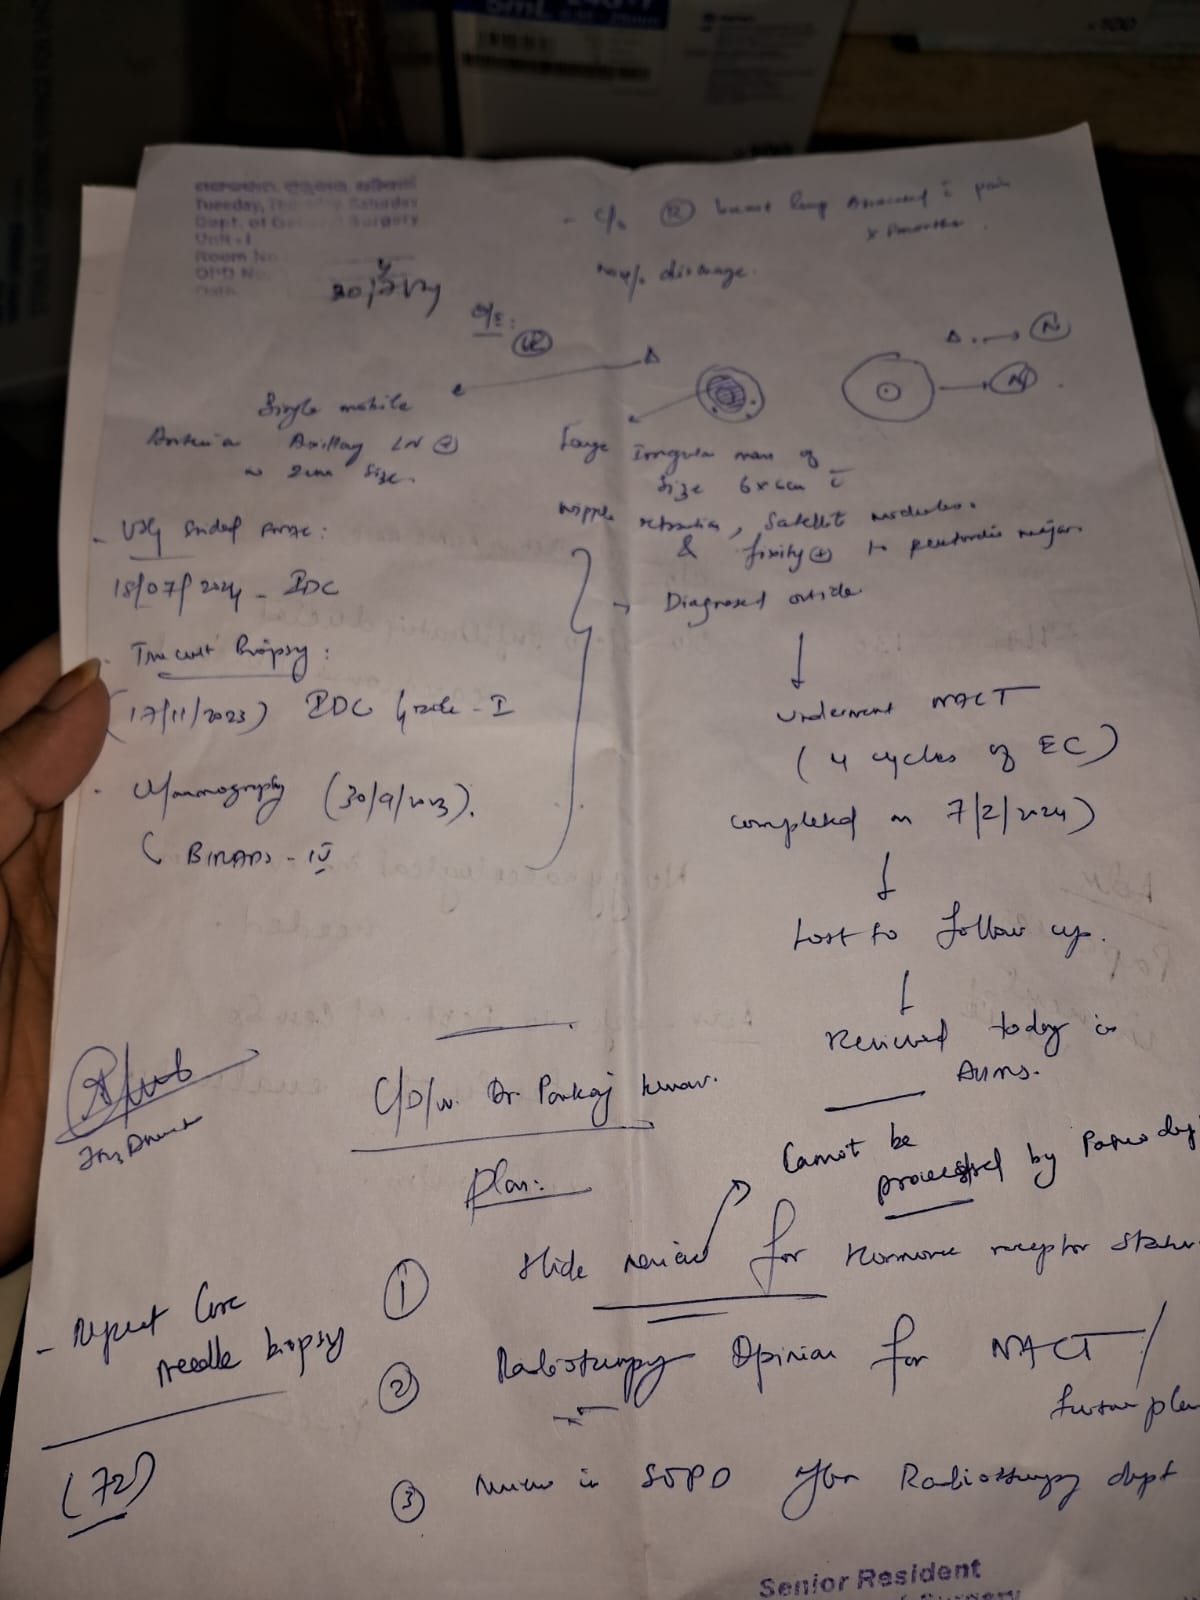 5mL
×100
Tuesday, Thursday, Saturday
Dept. of General Surgery
Unit - I
Room No
OPD No.
- C/o (R) breast lump associated c̄ pain
x months
No H/o discharge.
O/E:
(R)
→ (N)
→ (N)
Single mobile
Anterior Axillary LN (+)
~ 2cm size.
Large Irregular mass of
size 6x6cm c̄
nipple retraction, Satellite nodules.
& fixity (+) to pectoralis major.
- USG Guided FNAC:
18/07/2024 - IDC
→ Diagnosed outside
. Trucut Biopsy:
(17/11/2023) IDC Grade - I
underwent NACT
(4 cycles of EC)
. Mammography (30/9/2023).
completed on 7/2/2024)
BIRADS - IV
Lost to follow up.
Reviewed today in
AIIMS.
C/D/w. Dr Pankaj Kumar.
Cannot be
processed by Patho dept
Plan:
① Slide review for Hormone receptor status
- Repeat Core
needle biopsy
② Radiotherapy Opinion for NACT/
future plan
(72)
③ Review in SOPD after Radiotherapy dept
Senior Resident
Surgery